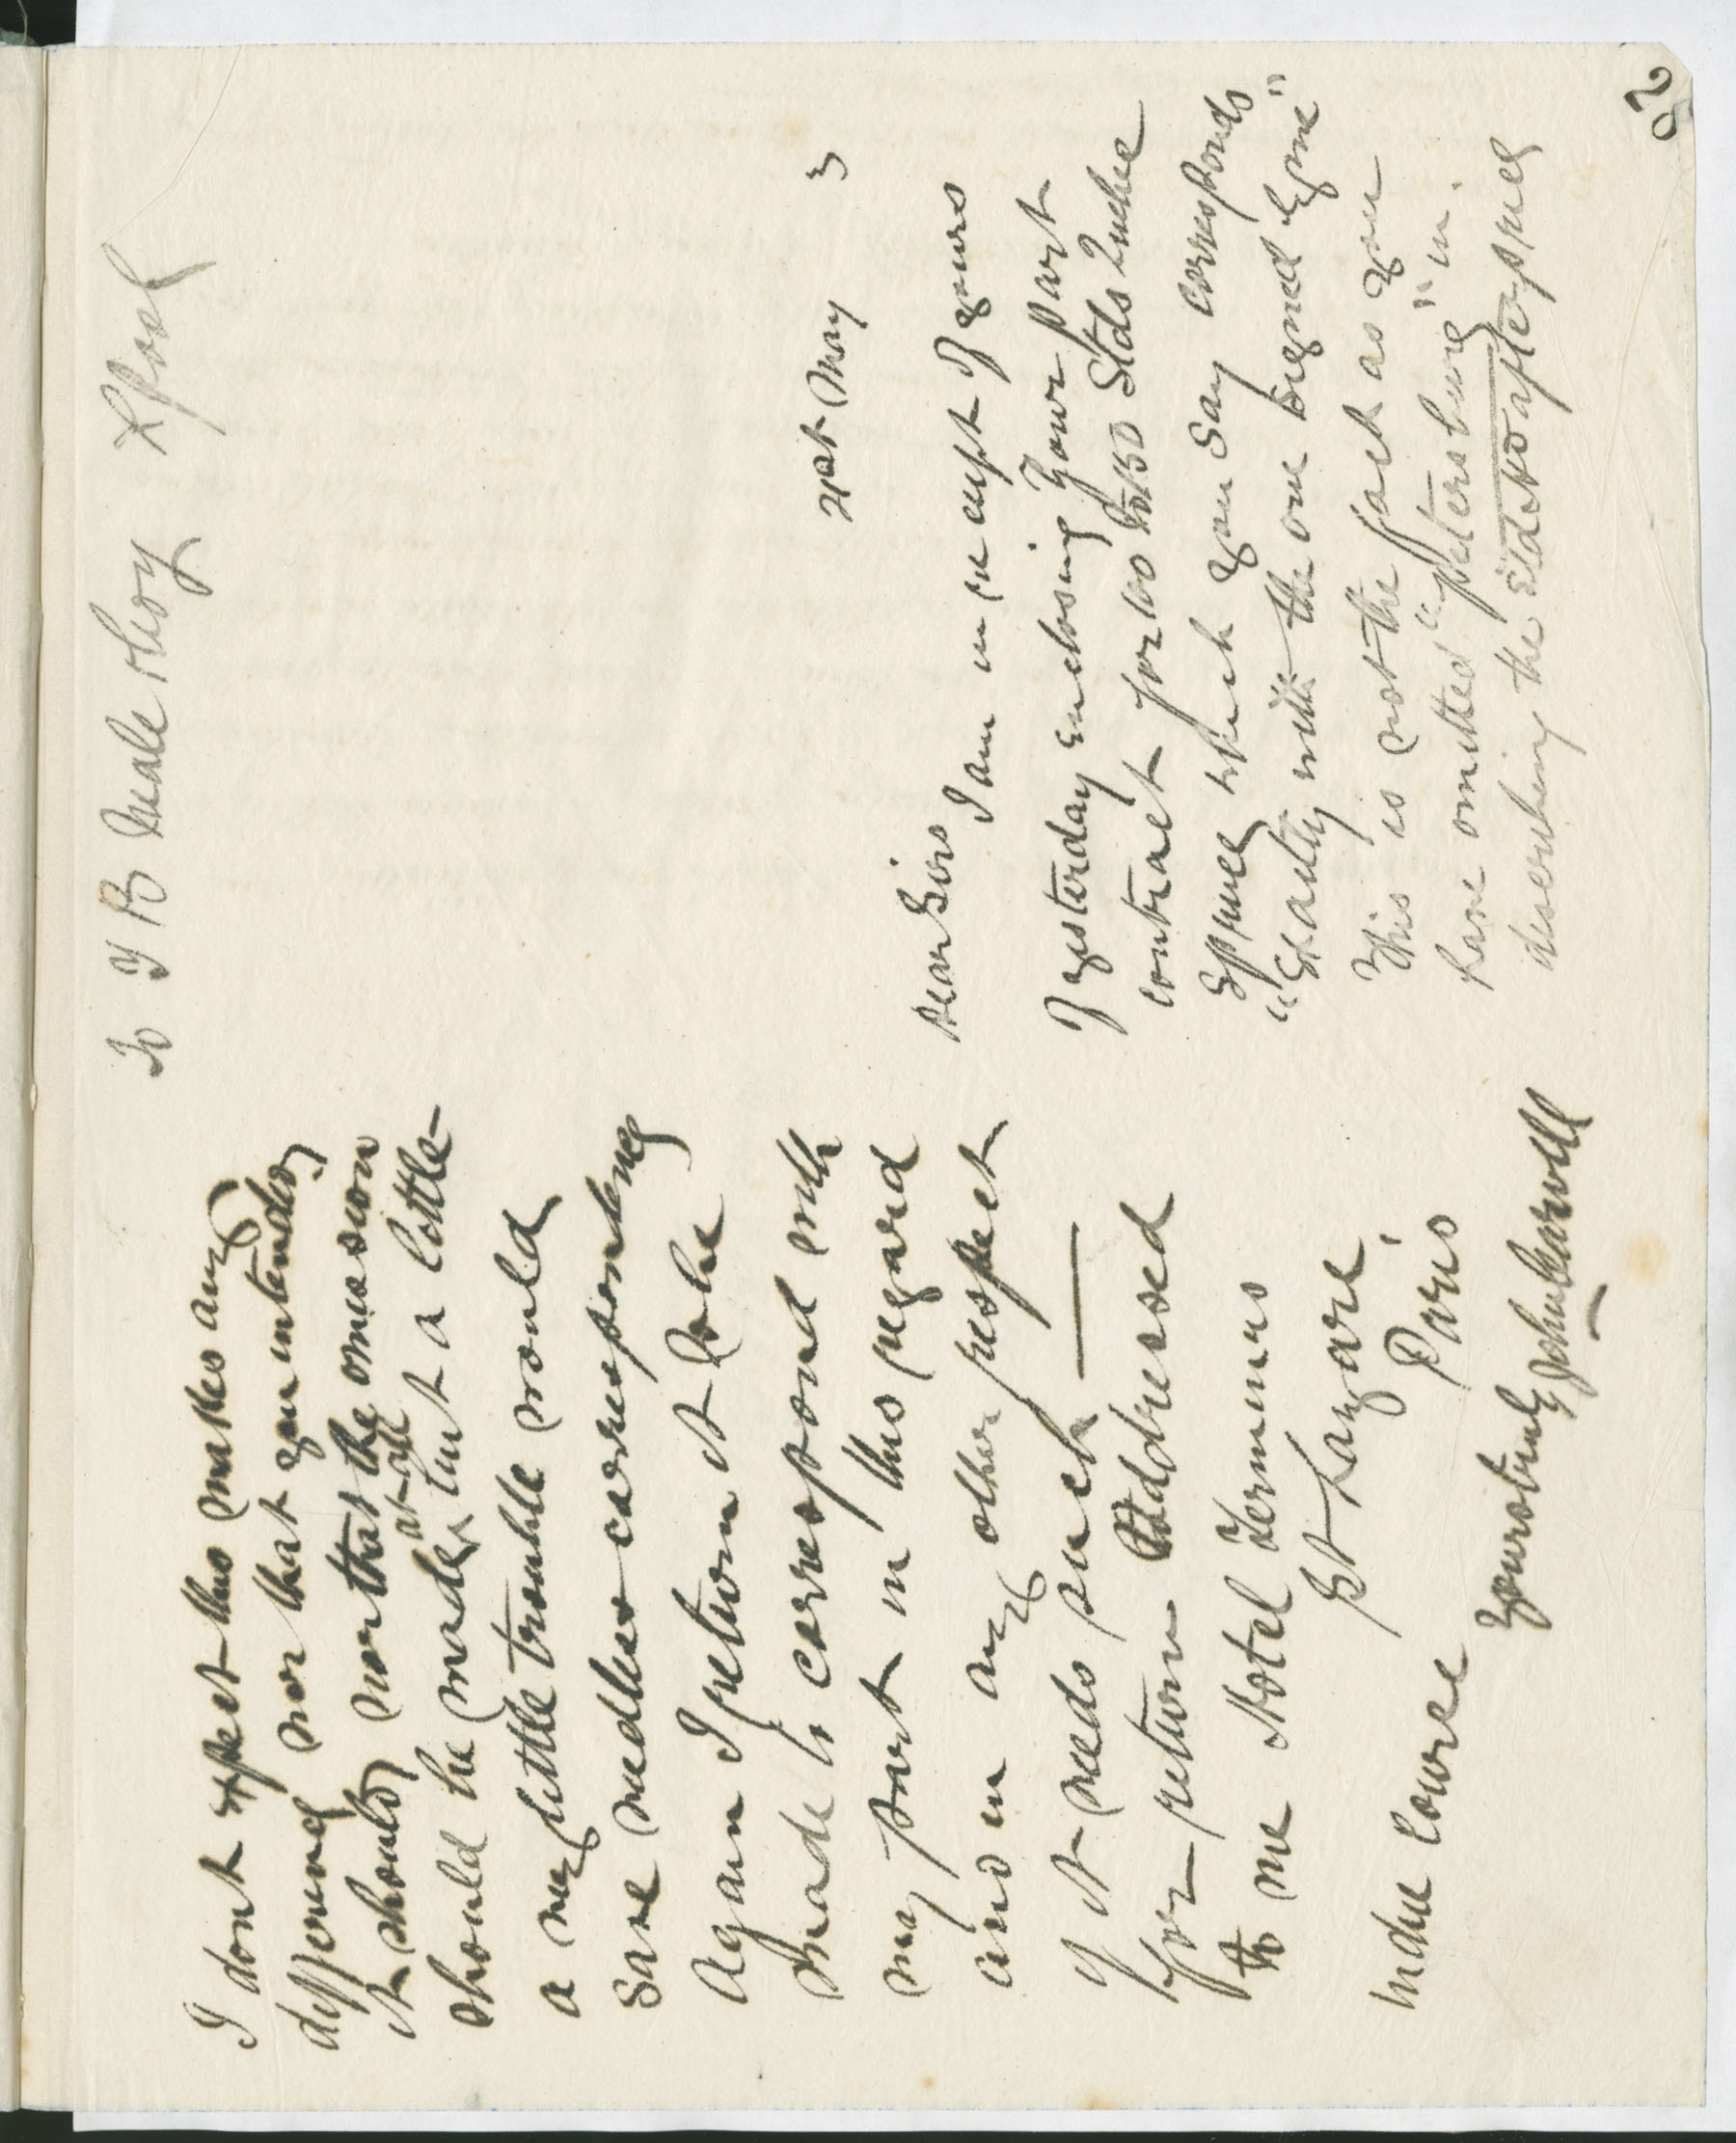 To T B Neale & Coy Lpool
21st May 3
Dear Sirs
I am in receipt of yours
of yesterday enclosing your part
contract for 100 to 150 Stds 2nd
Spruce which you say corresponds
"Exactly with the one signed by me"
This is not the fact as you
have omitted "Petersburg" in
describing the Stdrd of Spruce
I dont expect this makes any
difference nor that you intended
it should nor that the omission
should be made at all but a little
a very little trouble would
save needless correspondence
Again I return it to be
made to correspond with
my part in this regard
and in any other respect
if it needs such —
for return Addressed
to me Hotel Terminus
St Lazare
Paris
in due course
Yours truly
John
20